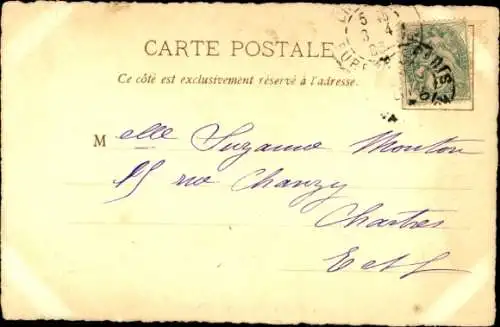 CARTE POSTALE
Ce côté est exclusivement réservé à l'adresse.
Melle Suzanne Mouton
15 rue Chanzy
Chartres
E et L